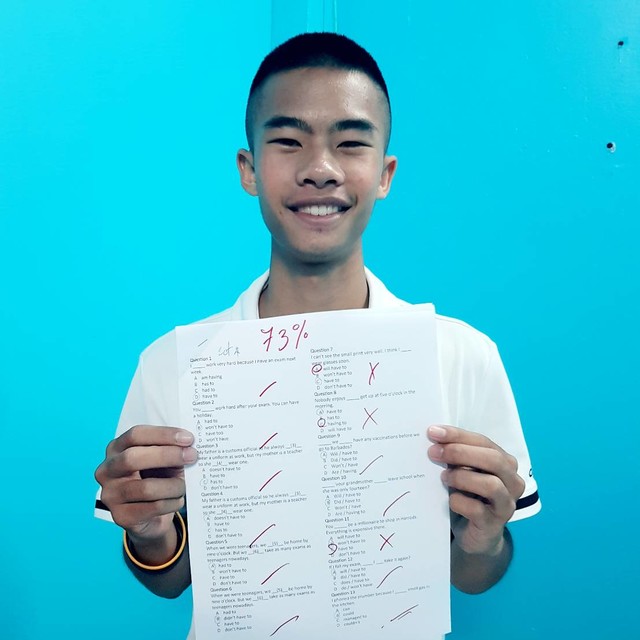 Set A
73%
Question 1
I ____ work very hard because I have an exam next
week.
A am having
B has to
C had to
D have to
Question 2
You ____ work hard after your exam. You can have
a holiday.
A had to
B won't have to
C have too
D won't have
Question 3
My father is a customs official so he always __(3)__
wear a uniform at work, but my mother is a teacher
so she __(4)__ wear one.
A doesn't have to
B have to
C has to
D don't have to
Question 4
My father is a customs official so he always __(3)__
wear a uniform at work, but my mother is a teacher
so she __(4)__ wear one.
A doesn't have to
B have to
C has to
D don't have to
Question 5
When we were teenagers, we __(5)__ be home by
nine o'clock. But we __(6)__ take as many exams as
teenagers nowadays.
A had to
B won't have to
C have to
D didn't have to
Question 6
When we were teenagers, we __(5)__ be home by
nine o'clock. But we __(6)__ take as many exams as
teenagers nowadays.
A had to
B didn't have to
C have to
D don't have to
Question 7
I can't see the small print very well. I think I ____
wear glasses soon.
A will have to
B won't have to
C have to
D don't have to
Question 8
Nobody enjoys ____ get up at five o'clock in the
morning.
A have to
B has to
C having to
D will have to
Question 9
____ we ____ have any vaccinations before we
go to Barbados?
A Will / have to
B Did / have to
C Won't / have
D Are / having
Question 10
____ your grandmother ____ leave school when
she was only fourteen?
A Will / have to
B Did / have to
D Are / having to
Question 11
You ____ be a millionaire to shop in Harrods.
Everything is expensive there.
A will have to
B won't have to
C have to
D don't have to
Question 12
If I fail my exam, ____ I ____ take it again?
A will / have to
B did / have to
C does / have to
D do / won't have to
Question 13
the kitchen.
A can
B could